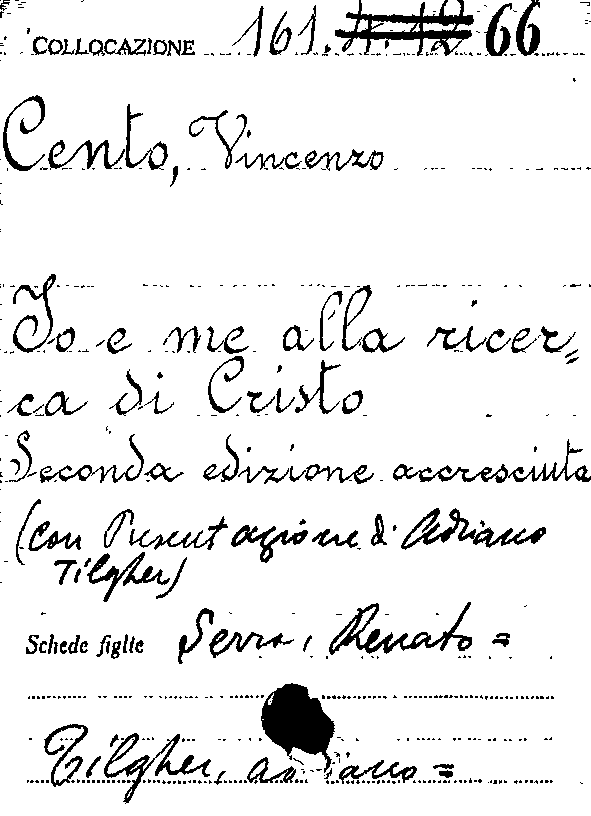 COLLOCAZIONE 161. 4. 12 66
Cento, Vincenzo
Io e me alla ricer=
ca di Cristo
Seconda edizione accresciuta
(con Presentazione di Adriano
Tilgher)
Schede figlie Serra, Renato =
Tilgher, ad iano =